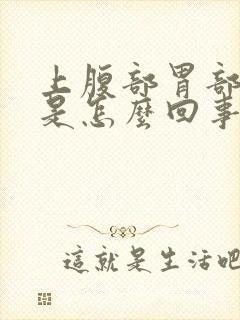 上腹部胃部
是怎麼回事
這就是生活吧